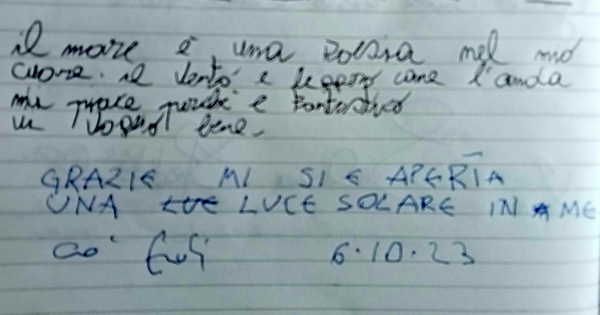 il mare è una poesia nel mio
cuore. il vento è leggero come l'onda
mi piace perchè è fantastico
vi voglio bene.
GRAZIE MI SI E APERTA
UNA LUCE SOLARE IN ME
6.10.23